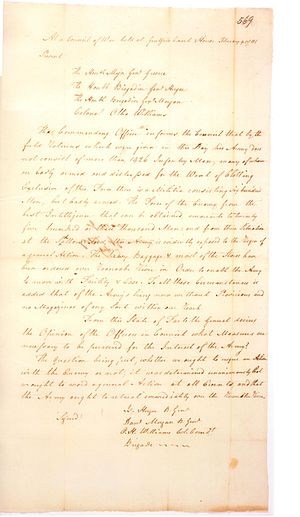 569
At a Council of War held at Guilford Court House February 9th 1781
Present
The Honble Majr Genl Greene
The Honble Brigadier Genl Huger
The Honble Brigadier Genl Morgan
Colonel Otho Williams
The Commanding Officer informs the Council that by the
field Returns which were given in this Day his Army does
not consist of more than 1426 Infantry Men, many of whom
are badly armed and distressed for the Want of Clothing
Exclusive of the Same there is a Militia consisting Six hundred
Men, but badly armed. The Force of the Enemy from the
best Intelligence that can be obtained amounts to twenty
five hundred or three Thousand Men; and from their Situation
at the our Army is evidently exposed to the danger of
a general Action. The Heavy Baggage & most of the Stores have
been ordered over River in Order to enable the Army
to move with Facility & Ease. To all these Circumstances is
added that of the Army's being now without Provisions and
no Magazines of any sort within our Reach
From this State of Facts the General desires
the Opinion of the Officers in Council what Measures are
necessary to be pursued for the Interest of the Army?
The Question being put, whether we ought to risque an Action
with the Enemy or not, it was determined unanimously that
we ought to avoid a general Action at all Events, and that
the Army ought to retreat immediately over the River
Signed
I. Huger B Genl
Danl Morgan B. Genl
O. H. Williams Col. Commdt
Brigade